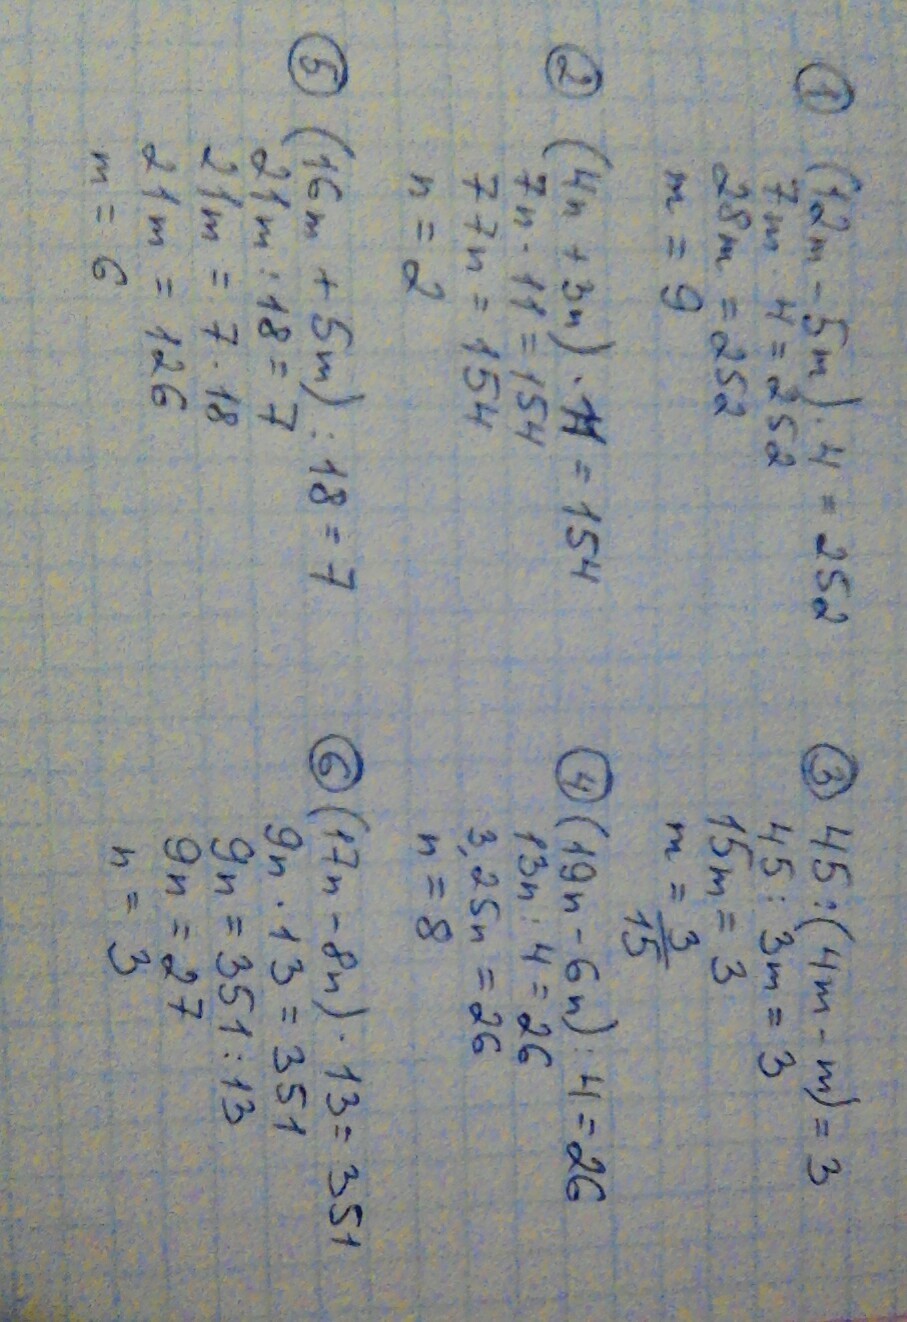 ① (12m - 5m) · 4 = 252
7m · 4 = 252
28m = 252
m = 9
② (4n + 3n) · 11 = 154
7n · 11 = 154
77n = 154
n = 2
⑤ (16m + 5m) : 18 = 7
21m : 18 = 7
21m = 7 · 18
21m = 126
m = 6
③ 45 : (4m - m) = 3
45 : 3m = 3
15m = 3
m = 3/15
④ (19n - 6n) : 4 = 26
13n : 4 = 26
3,25n = 26
n = 8
⑥ (17n - 8n) · 13 = 351
9n · 13 = 351
9n = 351 : 13
9n = 27
n = 3